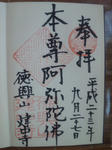 奉拝
平成二十三年
九月二十七日
本尊阿弥陀佛
徳興山 建中寺